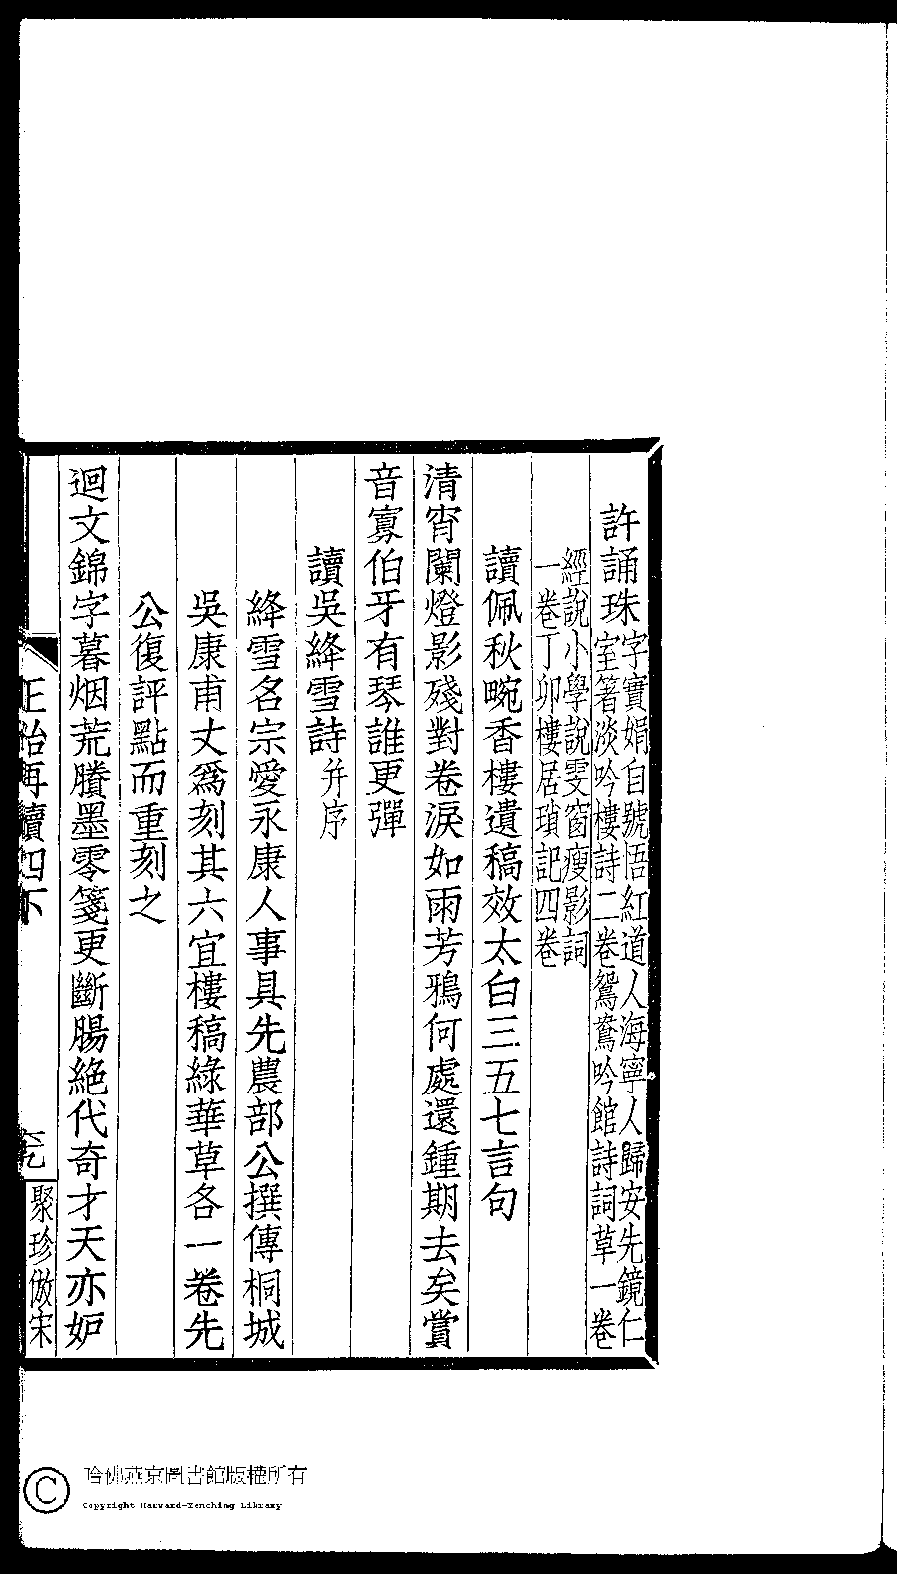 許誦珠
字寶娟自號悟紅道人海寧人歸安先鏡仁
室箸淡吟樓詩二卷鴛鴦吟館詩詞草一卷
經說小學說雯窗瘦影詞
一卷丁卯樓居瑣記四卷
讀佩秋畹香樓遺稿效太白三五七言句
清宵闌燈影殘對卷淚如雨芳鴉何處還鍾期去矣賞
音寡伯牙有琴誰更彈
讀吳絳雪詩并序
絳雪名宗愛永康人事具先農部公撰傳桐城
吳康甫丈爲刻其六宜樓稿綠華草各一卷先
公復評點而重刻之
迴文錦字暮烟荒賸墨零箋更斷腸絕代奇才天亦妒
正始再續四下
聚珍倣宋
哈佛燕京圖書館版權所有
Copyright Harvard-Yenching Library